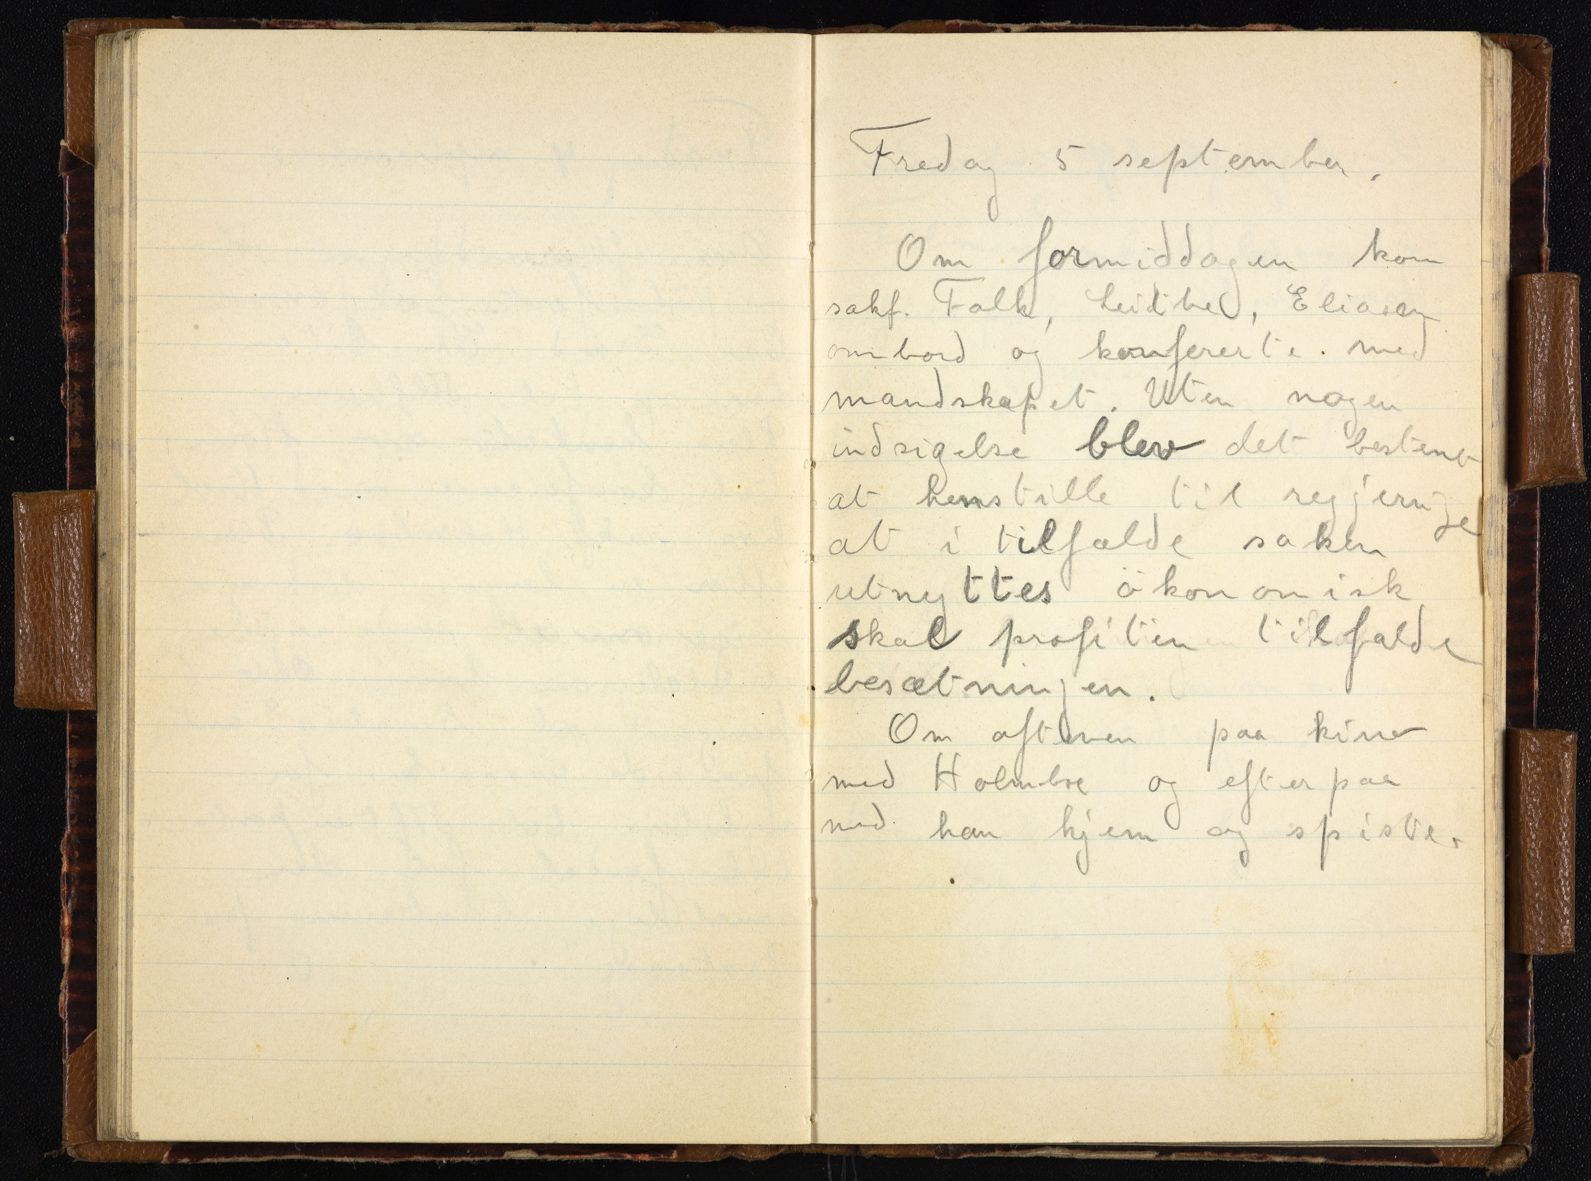 Fredag 5 september.
Om formiddagen kom
sakf. Falk, Leidbel, Eliasen
ombord og konfererte. med
mandskapet. Uten nogen
indsigelse blev det bestemt
at henstille til regjeringe
at i tilfælde saken
utnyttes ökonomisk
skal profiten tilfalde
besætningen.
Om aftenen paa kino
med Holmboe og efterpaa
med han hjem og spiste.